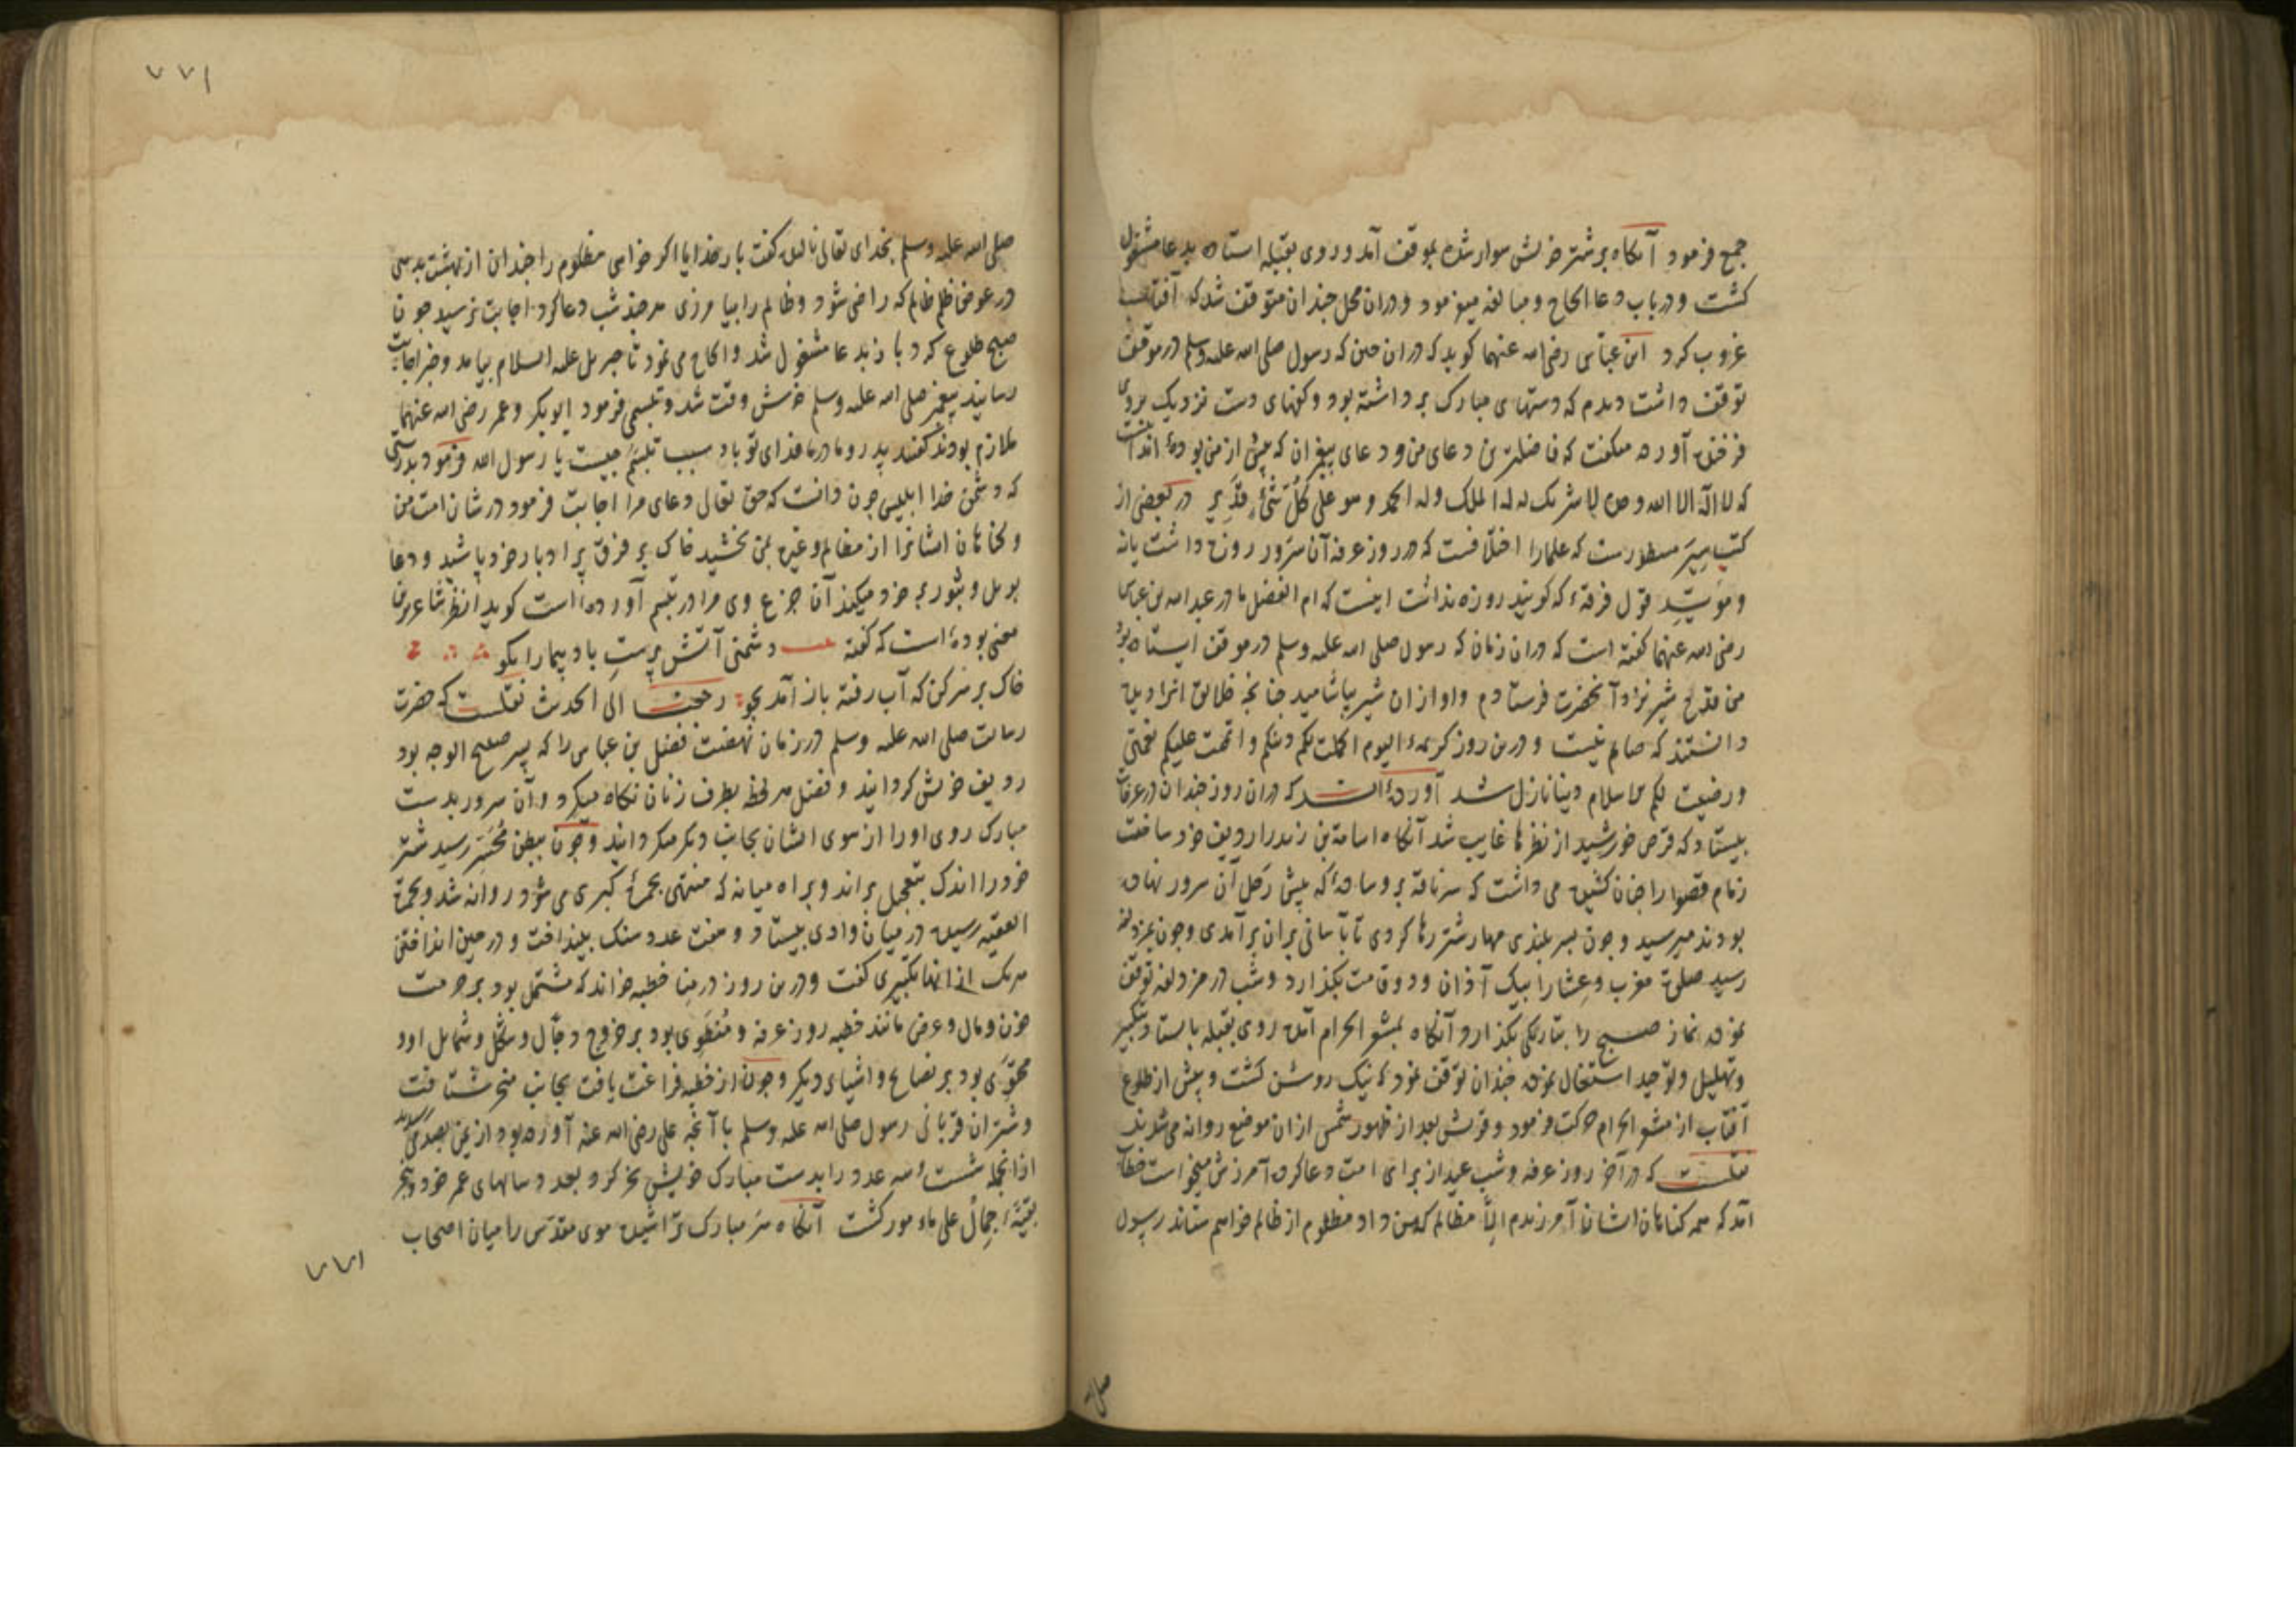 جمع فرمود آنکاه بر شتر خویش سوار شده بموقف آمد و روی بقبله استاده بدعا مشغول
کشت و در باب دعا الحاح و مبالغه میفرمود و دران محل چندان متوقف شد که آفتاب
غروب کرد ابن عباس رضی الله عنهما کوید که دران حین که رسول صلی الله علیه وسلم در موقف
توقف داشت دیدم که دستهای مبارک برداشته بود و کفهای دست نزدیک بروی
آورده میکفت که فاضلترین دعای من و دعای پیغمبران که پیش از من بوده اند اینست
که لا اله الا الله وحده لا شریک له له الملک وله الحمد وهو علی کل شیء قدیر در بعضی از
کتب سیر مسطورست که علما را اختلافست که در روز عرفه آن سرور روزه داشت یا نه
و موید قول فرقهٔ که کویند روزه نداشت اینست که ام الفضل مادر عبد الله بن عباس
رضی الله عنهما کفته است که دران زمان که رسول صلی الله علیه وسلم در موقف ایستاده بود
من قدح شیر نزد آنحضرت فرستادم و او ازان شیر بیاشامید چنانچه خلایق انرا دیده
دانستند که صایم نیست و درین روز کریمهٔ الیوم اکملت لکم دینکم و اتممت علیکم نعمتی
و رضیت لکم الاسلام دینا نازل شد آورده اند که دران روز چندان در عرفات
بیستاد که قرص خورشید از نظرها غایب شد آنکاه اسامة بن زید را ردیف خود ساخت
زمام قصوا را چنان کشیده می داشت که سر ناقه بر وسادهٔ که پیش رحل آن سرور نهاده
بودند میرسید و چون بسر بلندی مهار شتر رها کردی تا بآسانی بران برآمدی و چون بمزدلفه
رسید صلوة مغرب و عشا را بیک آذان و دو قامت بکذارد و شب در مزدلفه توقف
نموده نماز صبح را بتاریکی بکذارد و آنکاه بمشعر الحرام آمده روی بقبله بایستاد و بتکبیر
و تهلیل و توحید اشتغال نموده چندان توقف نمود که نیک روشن کشت و پیش از طلوع
آفتاب از مشعر الحرام حرکت فرمود و قریش بعد از ظهور شمس ازان موضع روانه می شدند
نقلست که در آخر روز عرفه و شب عید از برای امت دعا کرده آمرزش میخواست خطاب
آمد که همه کناهان ایشان را آمرزیدم الا مظالم که من داد مظلوم از ظالم خواهم ستاند رسول
صلی
۷۷۱
صلی الله علیه وسلم بخدای تعالی نالیده کفت بار خدایا اکر خواهی مظلوم را چندان از بهشت بدهی
در عوض ظلم ظالم که راضی شود و ظالم را بیامرزی هر چند شب دعا کرد اجابت نرسید چون
صبح طلوع کرد باز بدعا مشغول شد و الحاح می نمود تا جبریل علیه السلام بیامد و خبر اجابت
رسانید پیغمبر صلی الله علیه وسلم خوش وقت شد و تبسمی فرمود ابوبکر و عمر رضی الله عنهما
ملازم بودند کفتند پدر و مادر ما فدای تو باد سبب تبسم چیست یا رسول الله فرمود بدرستی
که دشمن خدا ابلیس چون دانست که حق تعالی دعای مرا اجابت فرمود در شان امت من
و کناهان ایشانرا از مظالم و غیره بمن بخشید خاک بر فرق پر ادبار خود پاشید و دعا
بویل و ثبور بر خود میکند آن جزع وی مرا در تبسم آورده است کوید ازنظر شاعر برین
معنی بوده است که کفته بیت دشمن آتش پرست باد پیما را بکو
خاک بر سر کن که آب رفته باز آمد بجو رجعنا الی الحدیث نقلست که حضرت
رسالت صلی الله علیه وسلم در زمان نهضت فضل بن عباس را که پسر صبیح الوجه بود
ردیف خویش کردانید و فضل هر لحظه بطرف زنان نکاه میکرد و آن سرور بدست
مبارک روی او را از سوی ایشان بجانب دیکر میکردانید و چون ببطن محسر رسید شتر
خود را اندک بتعجیل براند و براه میانه که منتهی بجمرهٔ کبری می شود روانه شد و بجمرة
العقبه رسیده در میان وادی بیستاد و هفت عدد سنک بینداخت و در حین انداختن
هر یک ازانها تکبیری کفت و درین روز در منا خطبه خواند که مشتمل بود بر حرمت
خون و مال و عرض مانند خطبه روز عرفه و منطوی بود بر خروج دجال و شکل و شمایل او و
محتوی بود بر نصایح و اشیای دیکر و چون از خطبه فراغت یافت بجانب منحر شتافت
و شتران قربانی رسول صلی الله علیه وسلم با آنچه علی رضی الله عنه آورده بود از یمن بصد می رسید
ازانجمله شست و سه عدد را بدست مبارک خویش نحر کرد بعدد سالهای عمر خود و نحر
بقیهٔ اجمال علی مامور کشت آنکاه سر مبارک تراشیده موی مقدس را میان اصحاب
۷۷۱